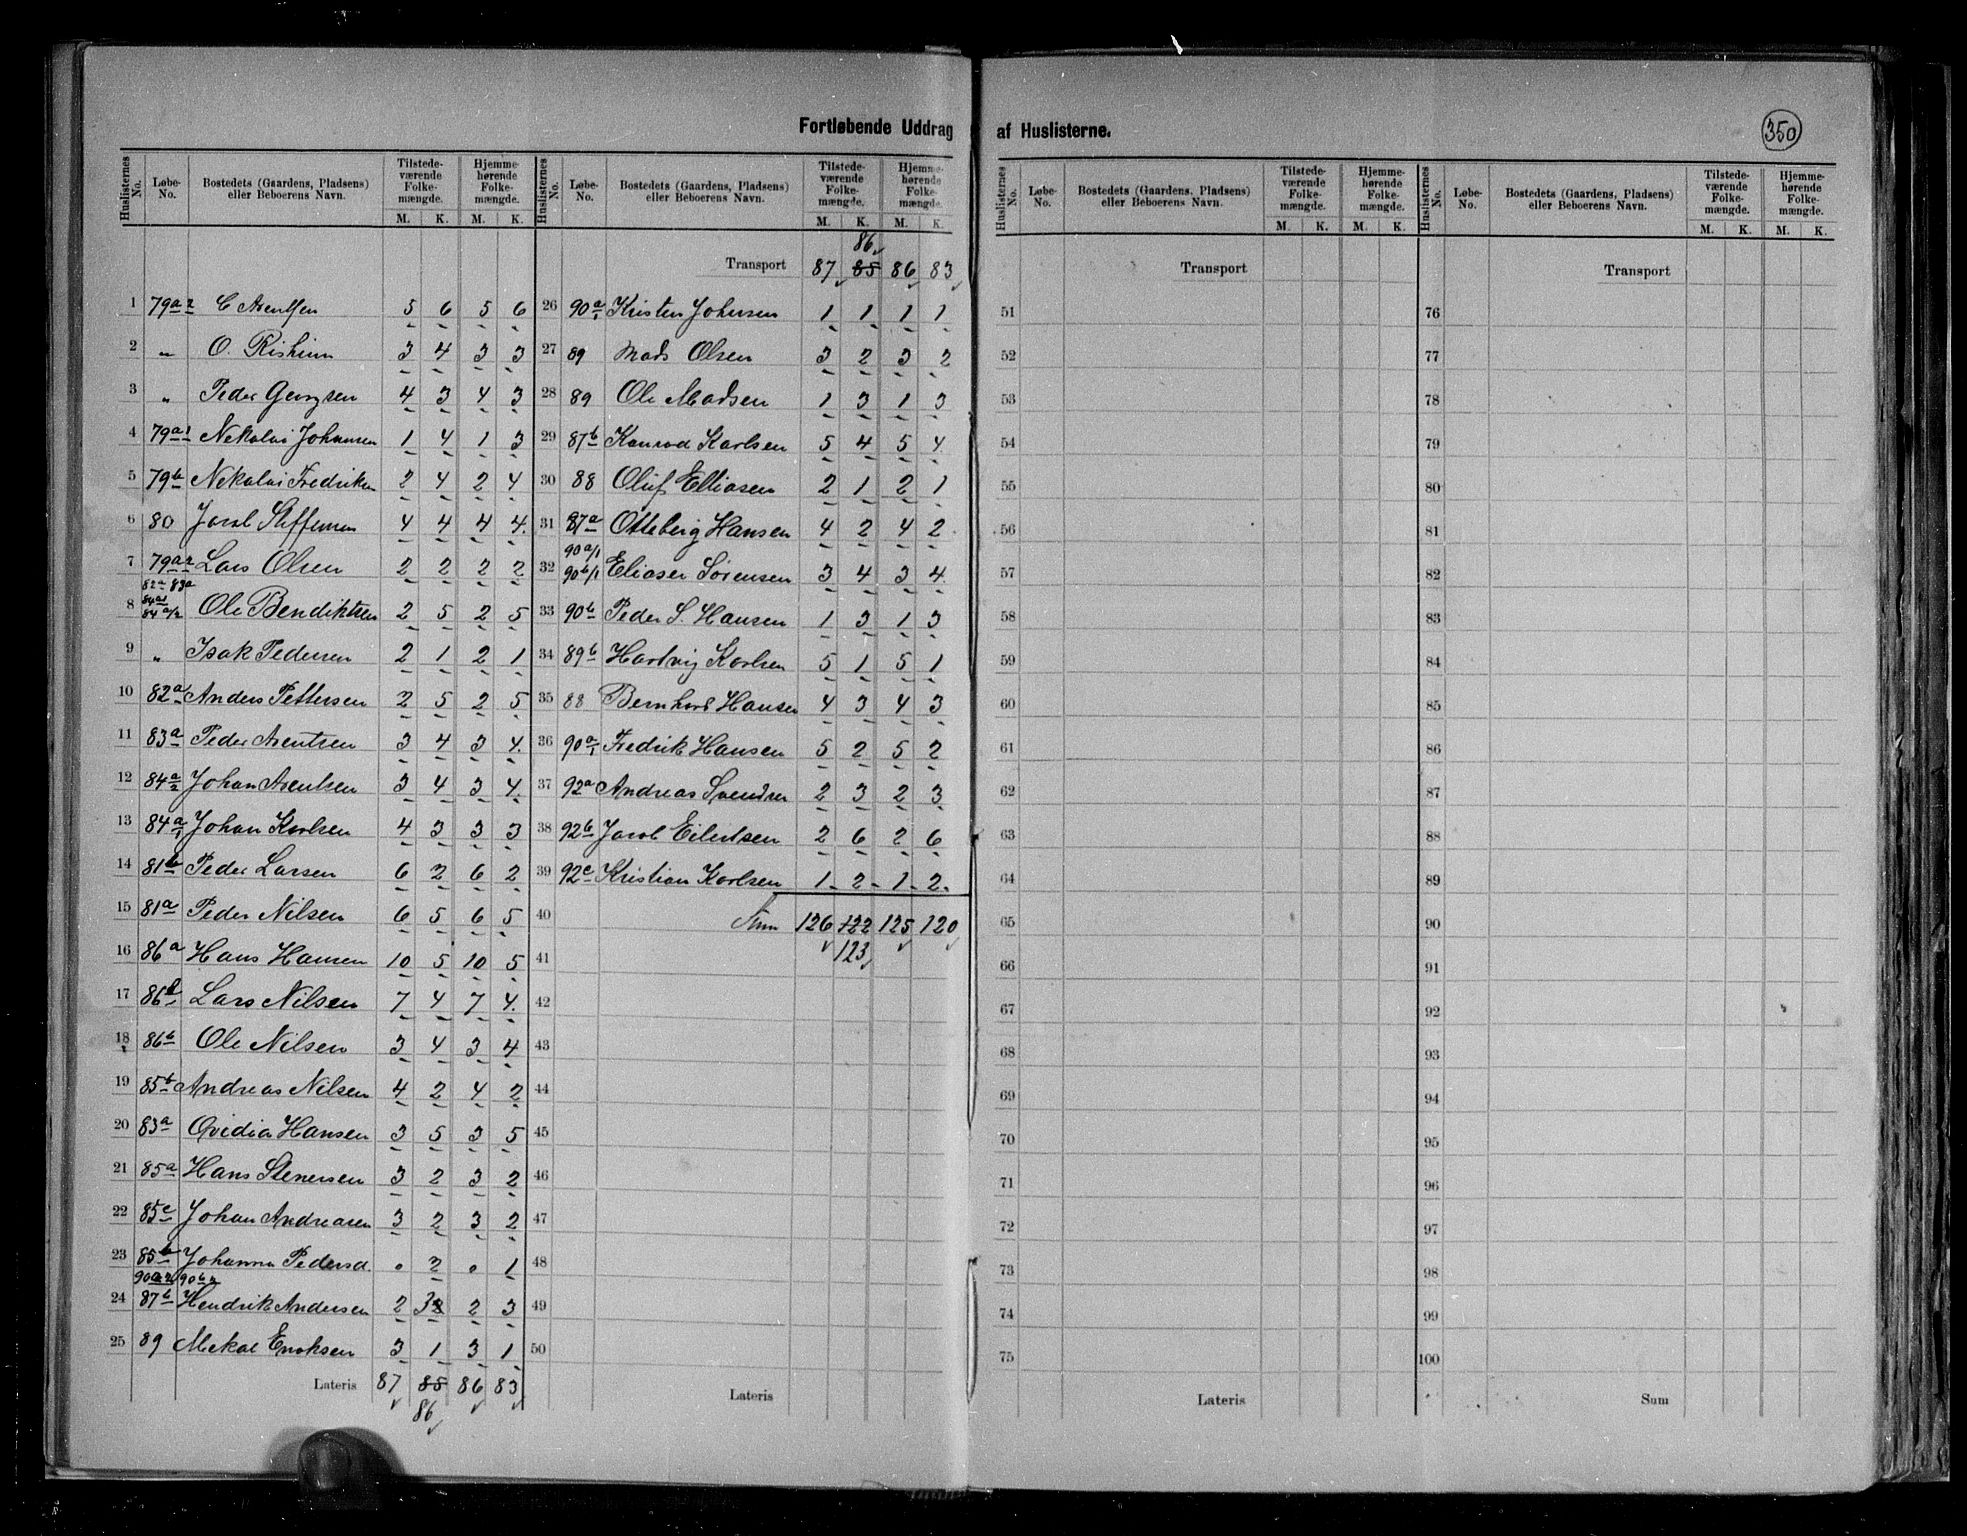 Fortløbende Uddrag af Huslisterne.
350
Huslisternes No. | Løbe-No. | Bostedets (Gaardens, Pladsens) eller Beboerens Navn. | Tilstede-værende Folke-mængde. M. K. | Hjemme-hørende Folke-mængde. M. K.
1 79a2 C Arentsen 5 6 5 6
2 " O. 3 4 3 3
3 " Peder Georgsen 4 3 4 3
4 79a1 Nekolai Johansen 1 4 1 3
5 79b Nekolai Fredriksen 2 4 2 4
6 80 Jacob Steffensen 4 4 4 4.
7 79a2 Lars Olsen 2 2 2 2
82a 83a
84a1
8 84a/2 Ole Bendiktsen 2 5 2 5
9 " Isak Pedersen 2 1 2 1
10 82a Anders Pettersen 2 5 2 5
11 83a Peder Arentsen 3 4 3 4.
12 84a2 Johan Arentsen 3 4 3 4.
13 84a1 Johan Karlsen 4 3 3 3
14 81b Peder Larsen 6 2 6 2
15 81a Peder Nilsen 6 5 6 5
16 86a Hans Hansen 10 5 10 5
17 86 Lars Nilsen 7 4 7 4.
18 86b Ole Nilsen 3 4 3 4
19 85b Andreas Nilsen 4 2 4 2
20 83a Ovidia Hansen 3 5 3 5
21 85a Hans Stenersen 3 2 3 2
22 85c Johan Andreasen 3 2 3 2
23 85b Johanna Pedersd. 0 2 0 1
90a2 90b2
24 87b Hendrik Andersen 2 3 2 2 3
25 89 Mekal Enoksen 3 1 3 1
Lateris 87 85 86 83
86
Huslisternes No. | Løbe-No. | Bostedets (Gaardens, Pladsens) eller Beboerens Navn. | Tilstede-værende Folke-mængde. M. K. | Hjemme-hørende Folke-mængde. M. K.
86
Transport 87 85 86 83
26 90a1 Kristen Johnsen 1 1 1 1
27 89 Mads Olsen 3 2 3 2
28 89 Ole Madsen 1 3 1 3
29 87b Konrad Karlsen 5 4 5 4.
30 88 Oluf Elliasen 2 1 2 1
31 87a Otteberg Hansen 4 2 4 2
90a/1
32 90b/1 Elias&#101;r Sørensen 3 4 3 4
33 90b Peder S. Hansen 1 3 1 3
34 89b Hartvig Karlsen 5 1 5 1
35 88 Bernhard Hansen 4 3 4 3
36 90a1 Fredrik Hansen 5 2 5 2
37 92a Andreas Svendsen 2 3 2 3
38 92b Jacob Eilertsen 2 6 2 6
39 92c Kristian Karlsen 1 2 1 2.
40 Sum 126 122 125 120
41 123
42
43
44
45
46
47
48
49
50
Lateris
Huslisternes No. | Løbe-No. | Bostedets (Gaardens, Pladsens) eller Beboerens Navn. | Tilstede-værende Folke-mængde. M. K. | Hjemme-hørende Folke-mængde. M. K.
Transport
51
52
53
54
55
56
57
58
59
60
61
62
63
64
65
66
67
68
69
70
71
72
73
74
75
Lateris
Huslisternes No. | Løbe-No. | Bostedets (Gaardens, Pladsens) eller Beboerens Navn. | Tilstede-værende Folke-mængde. M. K. | Hjemme-hørende Folke-mængde. M. K.
Transport
76
77
78
79
80
81
82
83
84
85
86
87
88
89
90
91
92
93
94
95
96
97
98
99
100
Sum